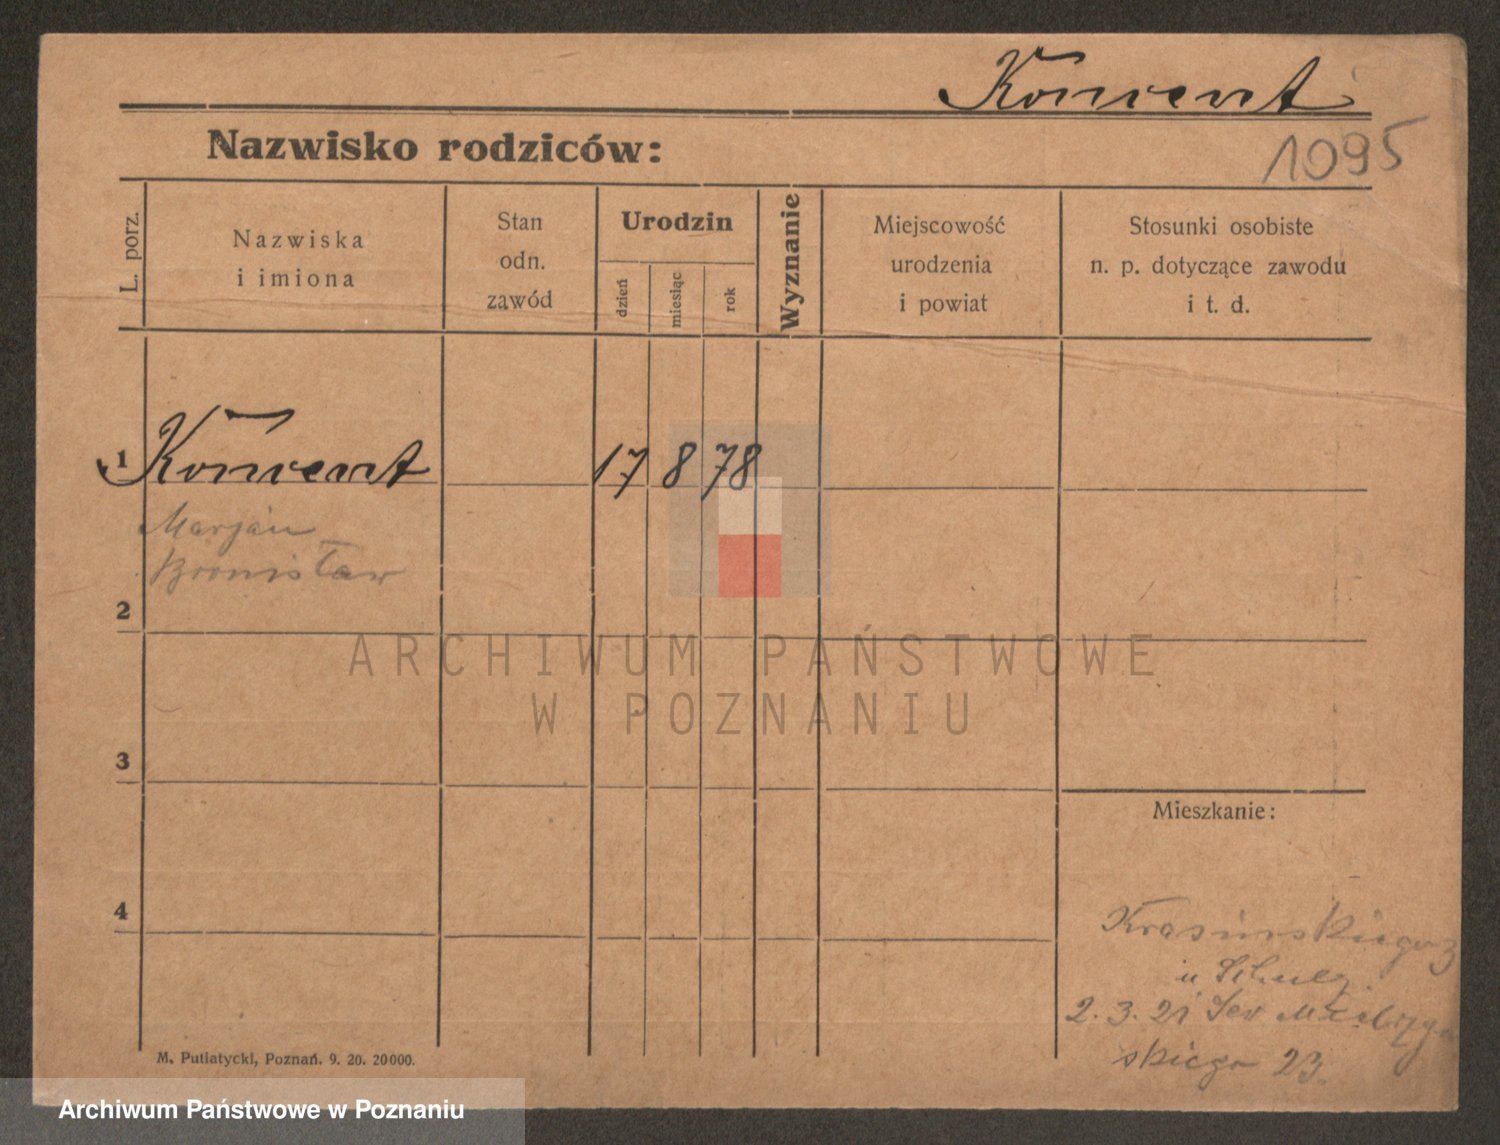 Konvent
1095
Nazwisko rodziców:
L. porz.
Nazwiska
i imiona
Stan
odn.
zawód
Urodzin
dzień
miesiąc
rok
Wyznanie
Miejscowość
urodzenia
i powiat
Stosunki osobiste
n. p. dotyczące zawodu
i t. d.
1 Konvent 17 8 78
Marjan
Bronisław
2
ARCHIWUM PAŃSTWOWE
W POZNANIU
3
Mieszkanie:
4
Krasińskiego 3
u
2. 3. 21 Sew
skiego 23.
M. Putiatycki, Poznań. 9. 20. 20000.
Archiwum Państwowe w Poznaniu